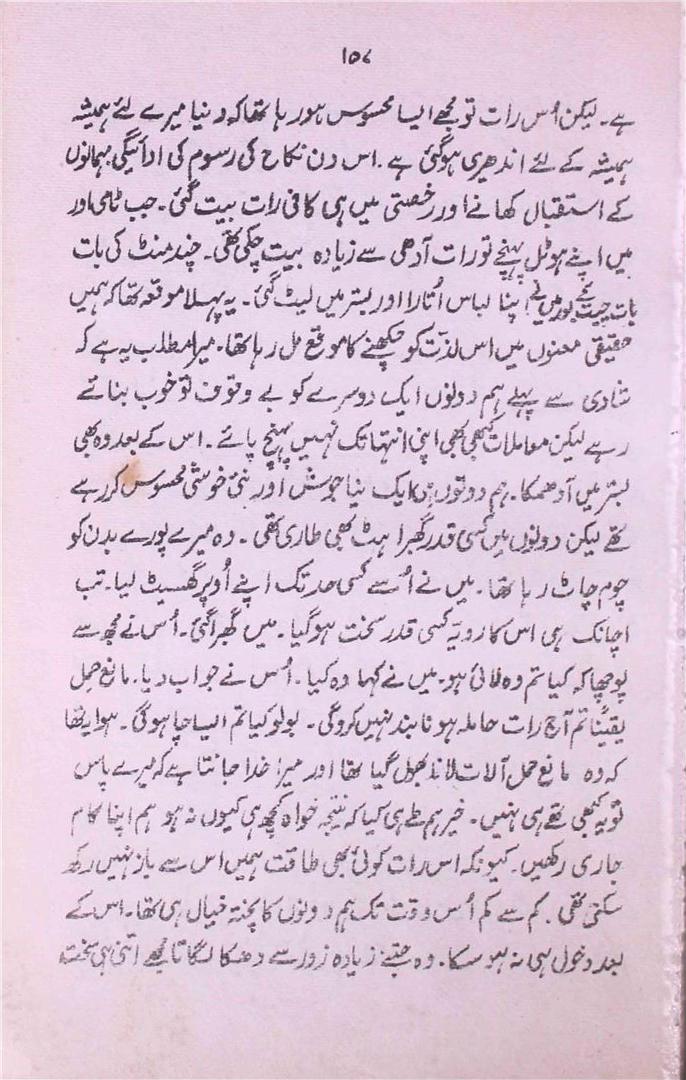 ۱۵۷
ہے۔ لیکن اُس رات تو مجھے ایسا محسوس ہو رہا تھا کہ دنیا میرے لئے ہمیشہ
ہمیشہ کے لئے اندھیری ہو گئی ہے۔ اس دن نکاح کی رسوم کی ادائیگی مہمانوں
کے استقبال کھانے اور رخصتی میں ہی کافی رات بیت گئی۔ جب ٹامی اور
میں اپنے ہوٹل پہنچے تو رات آدھی سے زیادہ بیت چکی تھی۔ چند منٹ کی بات
بات چیت کے بعد میں نے اپنا لباس اُتارا اور بستر میں لیٹ گئی۔ یہ پہلا موقعہ تھا کہ ہمیں
حقیقی معنوں میں اس لذت کو چکھنے کا موقع مل رہا تھا۔ میرا مطلب یہ ہے کہ
شادی سے پہلے ہم دونوں ایک دوسرے کو بے وقوف تو خوب بناتے
رہے لیکن معاملات کبھی بھی اپنی انتہا تک نہیں پہنچ پائے۔ اس کے بعد وہ بھی
بستر میں آدھمکا۔ ہم دونوں ہی ایک نیا جوش اور نئی خوشی محسوس کر رہے
تھے لیکن دونوں میں کسی قدر گھبراہٹ بھی طاری تھی۔ وہ میرے پورے بدن کو
چوم چاٹ رہا تھا۔ میں نے اُسے کسی حد تک اپنے اُوپر گھسیٹ لیا۔ تب
اچانک ہی اس کا رویہ کسی قدر سخت ہو گیا۔ میں گھبرا گئی۔ اُس نے مجھ سے
پوچھا کہ کیا تم وہ لائی ہو۔ میں نے کہا وہ کیا۔ اُس نے جواب دیا۔ مانع حمل
یقیناً تم آج رات حاملہ ہونا پسند نہیں کرو گی۔ بولو کیا تم ایسا چاہو گی۔ ہوا یہ تھا
کہ وہ مانع حمل آلات لانا بھول گیا تھا اور میرا خدا جانتا ہے کہ میرے پاس
تو یہ کبھی تھے ہی نہیں۔ خیر ہم طے ہی کیا کہ نتیجہ خواہ کچھ ہی کیوں نہ ہو ہم اپنا کام
جاری رکھیں۔ کیونکہ اس رات کوئی بھی طاقت ہمیں اس سے باز نہیں رکھ
سکتی تھی۔ کم سے کم اُس وقت تک ہم دونوں کا پختہ خیال ہی تھا۔ اس کے
بعد دخول ہی نہ ہو سکا۔ وہ جتنے زیادہ زور سے دھکا لگاتا مجھے اتنی ہی سخت